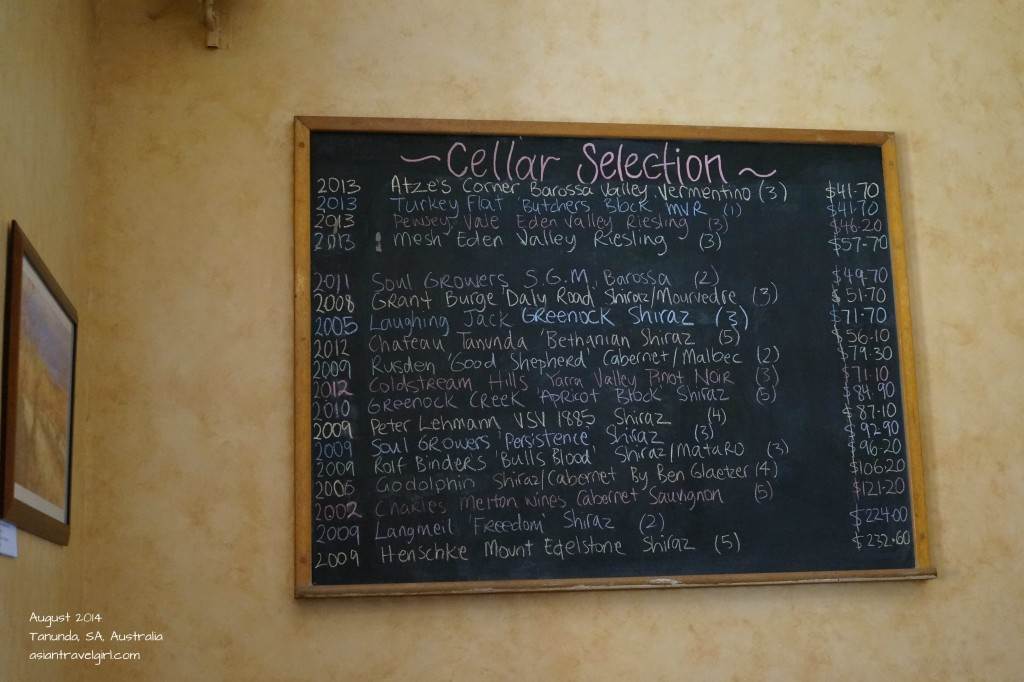 ~Cellar Selection~
2013 Atze's Corner Barossa Valley Vermentino (3) $41.70
2013 Turkey Flat 'Butchers Block' MVR (1) $41.70
2013 Pewsey Vale Eden Valley Riesling (3) $46.20
2013 Mesh Eden Valley Riesling (3) $57.70
2011 Soul Growers S.G.M. Barossa (2) $49.70
2008 Grant Burge 'Daly Road' Shiraz/Mourvedre (3) $51.70
2005 Laughing Jack Greenock Shiraz (3) $71.70
2012 Chateau Tanunda 'Bethanian Shiraz (5) $56.10
2009 Rusden 'Good Shepherd' Cabernet/Malbec (2) $79.30
2012 Coldstream Hills Yarra Valley Pinot Noir (3) $71.10
2010 Greenock Creek 'Apricot Block' Shiraz (5) $84.90
2009 Peter Lehmann VSV 1885 Shiraz (4) $87.10
2009 Soul Growers 'Persistence' Shiraz (3) $92.90
2009 Rolf Binders 'Bulls Blood' Shiraz/Mataro (3) $96.20
2006 Godolphin Shiraz/Cabernet By Ben Glaetzer (4) $106.20
2002 Charles Merton Wines Cabernet Sauvignon (5) $121.20
2009 Langmeil 'Freedom' Shiraz (2) $224.00
2009 Henschke Mount Edelstone Shiraz (5) $232.60
August 2014
Tanunda, SA, Australia
asiantravelgirl.com